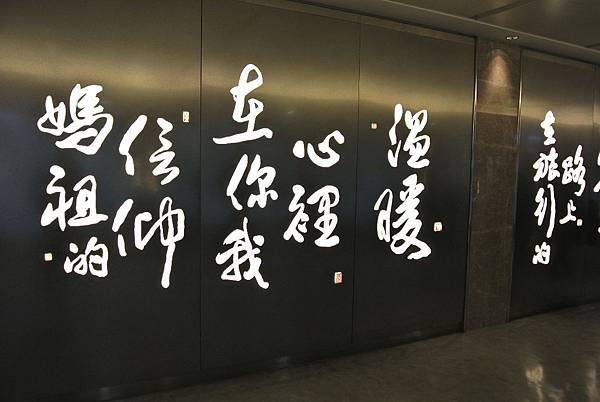 媽祖的
信仰
在你我
心裡
溫暖
在旅行的
路上